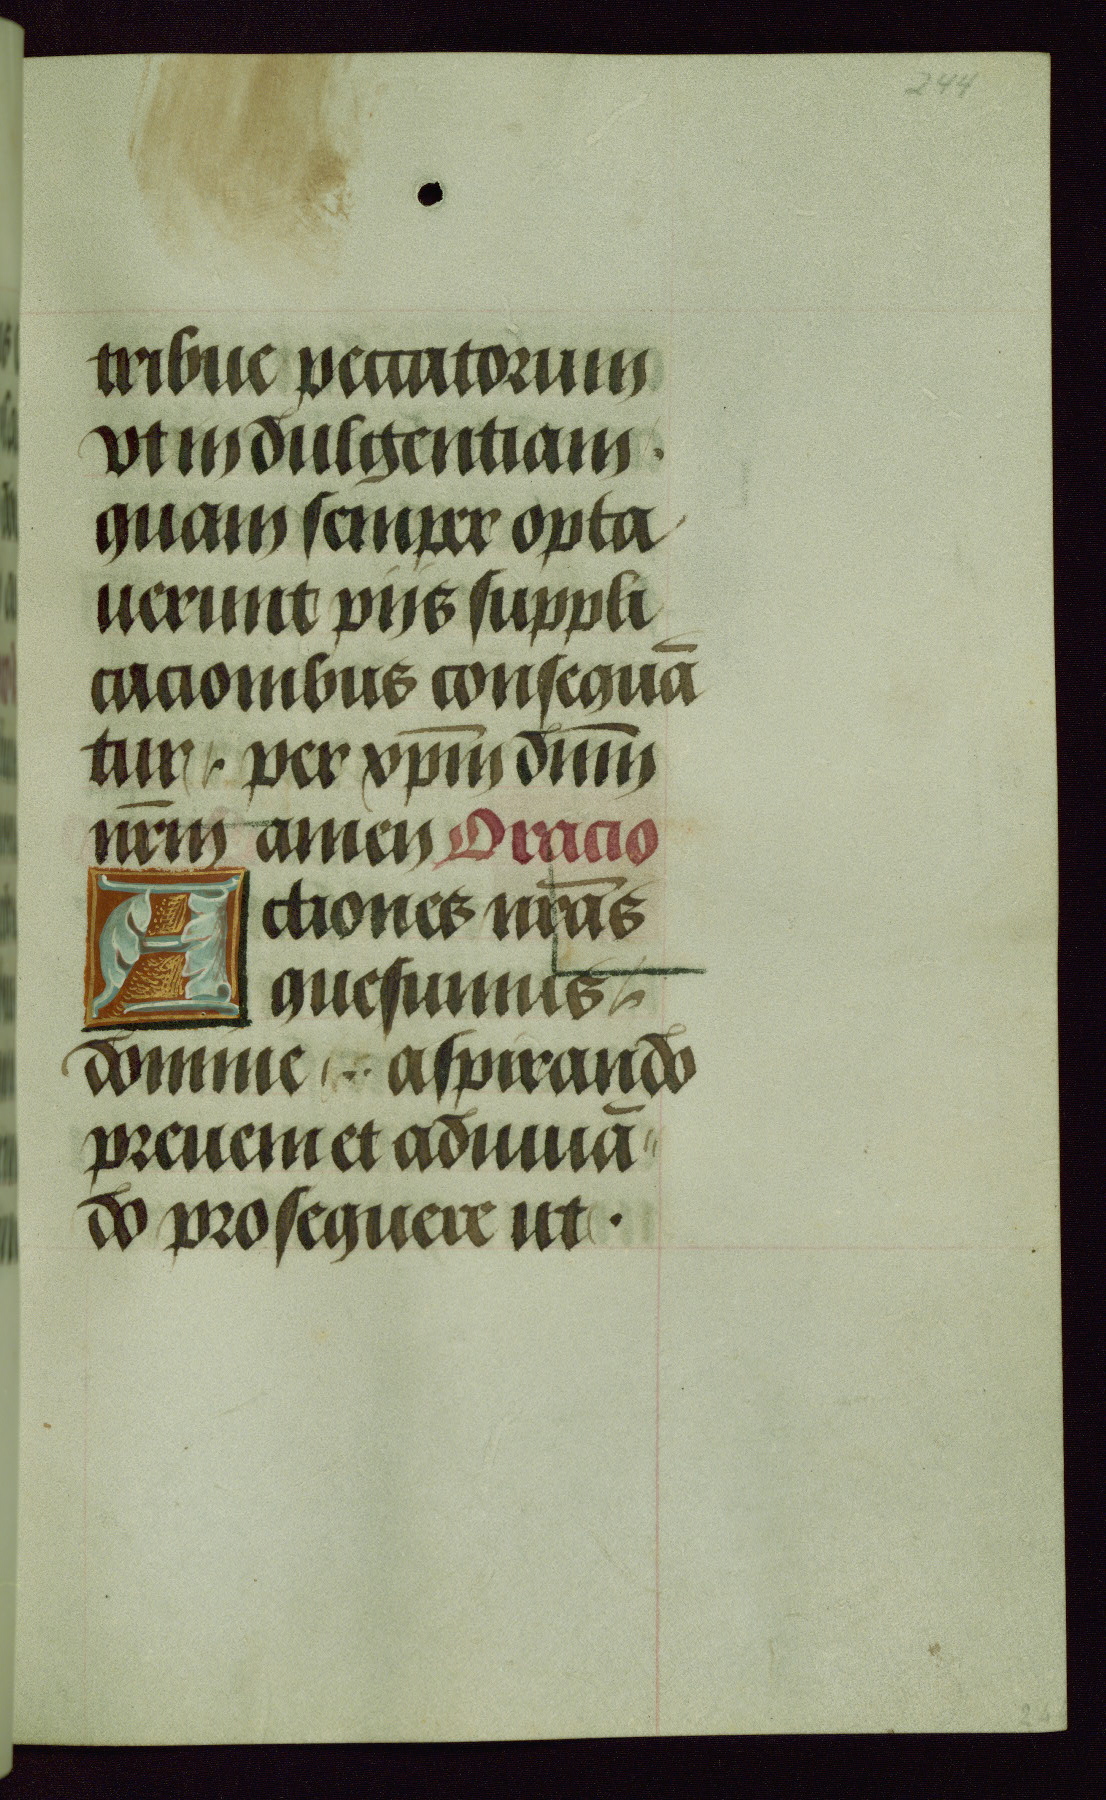 244
tribue peccatorum
vt indulgentiam .
quam semper opta
uerunt piis suppli
cacionibus consequā
tur . per xp̄m dn̄m
nr̄m amen Oracio
Actiones nr̄as
quesumus
domine . aspirando
preueni et adiuuā
do prosequere ut .